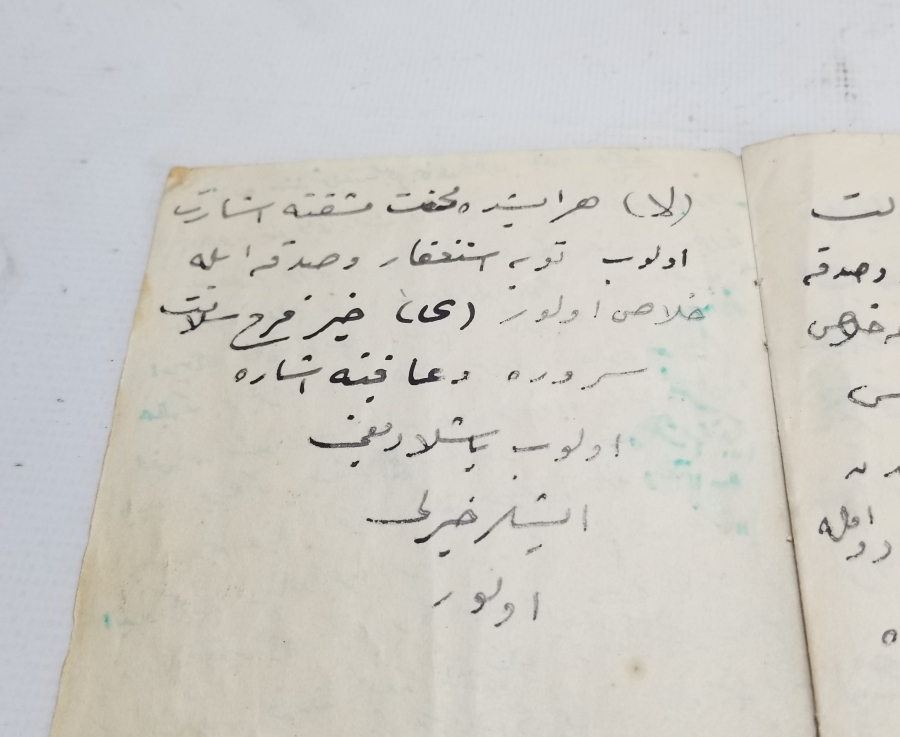 (لا) هر ایشده محنت مشقته اشارت
اولوب توبه استغفار و صدقه ایله
خلاص اولور (ی) خیر فرح سلامت
سروره و عافیته اشاره
اولوب باشلادیغی
ایشلر خیرلی
اولور
لت
و صدقه
خلاص
سی
ده
ه